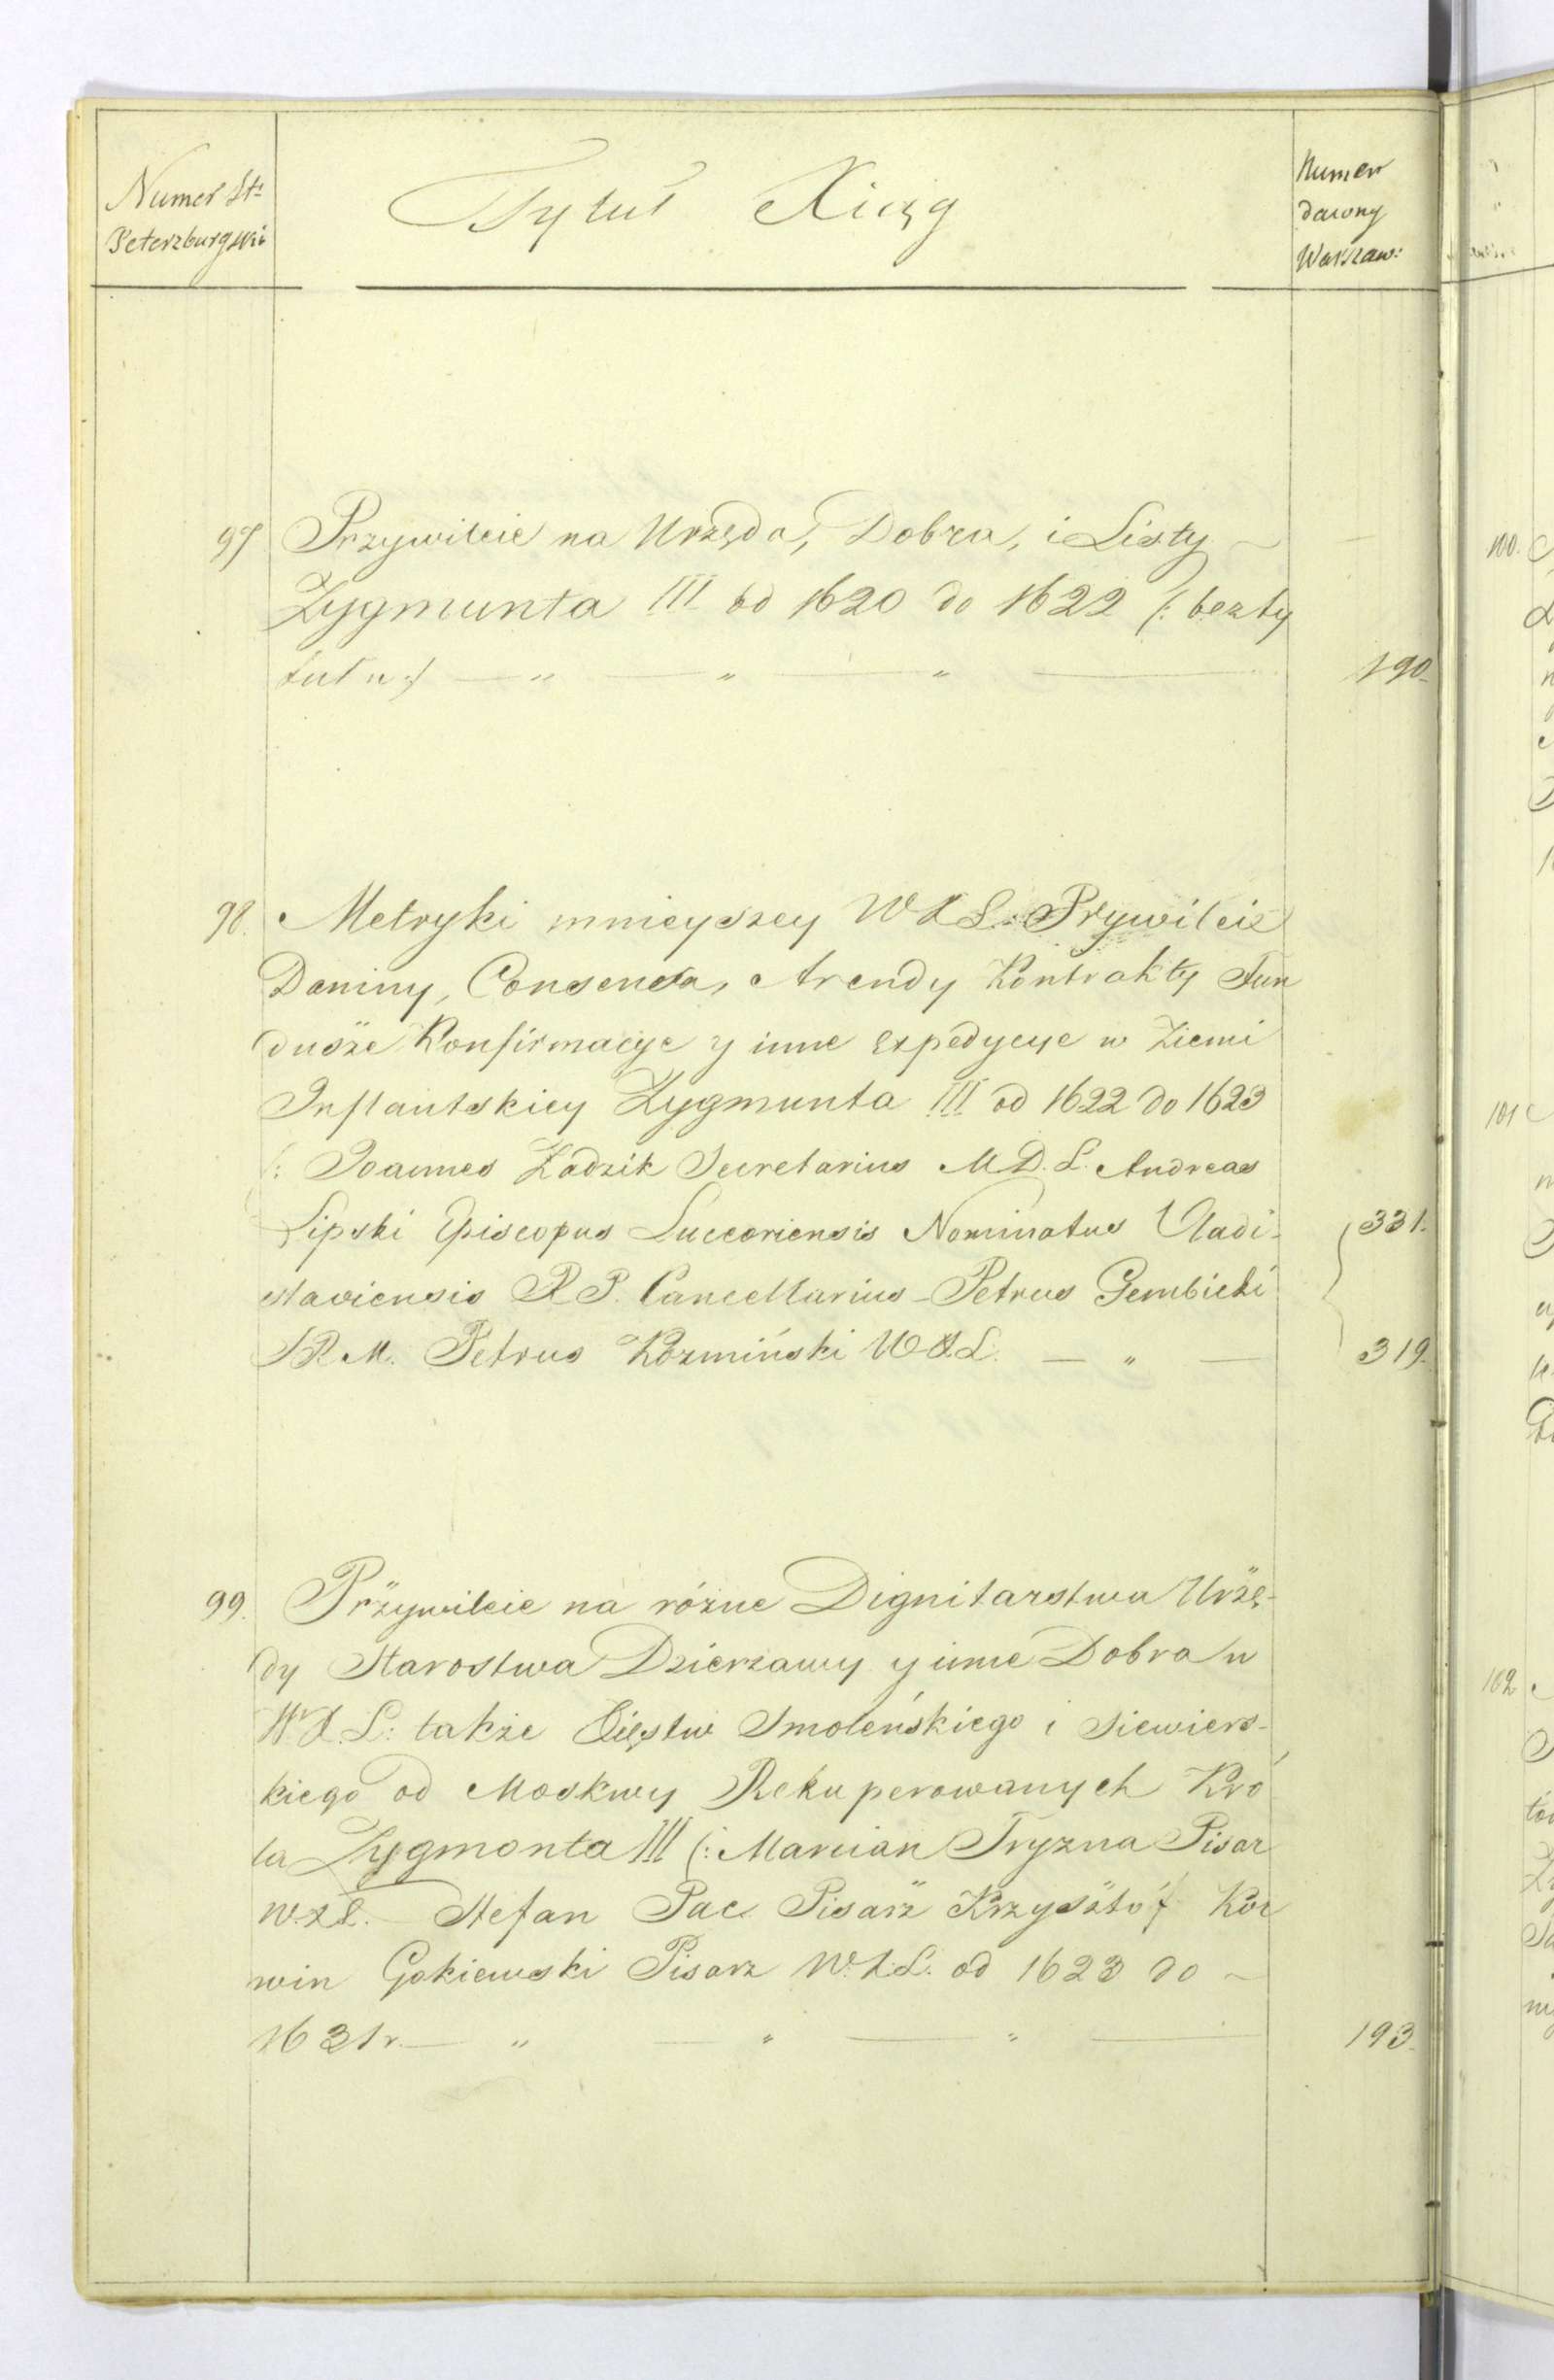 Numer St:
Peterzburgski
Tytuł Xiąg
Numer
dawny
Warszaw:
97 Przywileie na Urzęda, Dobra, i Listy
Zygmunta III od 1620 do 1622 (: bezty
tułu :) — " — " — " — 190.
98. Metryki mnieyszey W X L: Prywileie
Daniny, Consensa, Arendy Kontrakty Fun
dusze Konfirmacye y inne Expedycye w Ziemi
Inflantskiey Zygmunta III od 1622 do 1623
(: Joannes Zadzik Secretarius M D. L. Andreas
Lipski Episcopus Lucceoriensis Nominatus Vladi- 331.
slaviensis R P. Cancellarius - Petrus Gembicki
S R M. Petrus Kozmiński W X L. — " — 319.
99. Przywileie na różne Dignitarstwa Urzę-
dy Starostwa Dzierzawy y inne Dobra w
W X L: także Xięstw Smoleńskiego i Siewiers-
kiego od Moskwy Rekuperowanych Kró
la Zygmonta III (: Marcian Tryzna Pisar
W. X L. - Stefan Pac Pisarz Krzysztóf Kor
win Gąsiewski Pisarz W. X L. od 1623 do ~
1631 r. — " — " — " — 193.
100.
101
102